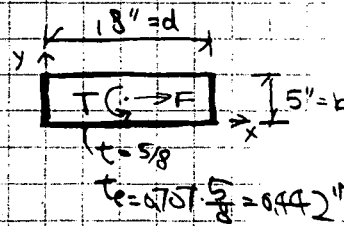 18" = d
y
T → F
5" = b
x
t = 5/8
te = 0.707 · 5/8 = 0.442"